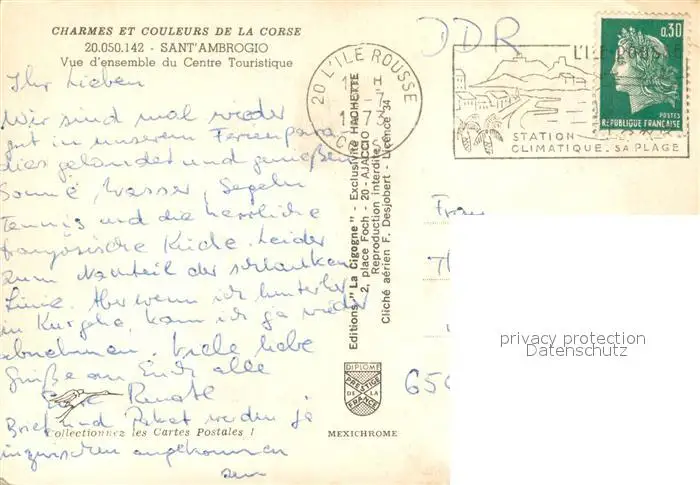 CHARMES ET COULEURS DE LA CORSE
20.050.142 - SANT'AMBROGIO
Vue d'ensemble du Centre Touristique
Ihr Lieben
Wir sind mal wieder
gut in unserem Ferienpara
dies gelandet und genießen
Sonne, Wasser, Segeln
Tennis und die herrliche
französische Küche. Leider
zum Nachteil der schlanken
Linie. Aber wenn ich hinterher
in Kur gehe, kann ich ja wieder
abnehmen. Viele liebe
Grüße an Euch alle
Eure Renate
Brief und Paket werden ja
inzwischen angekommen
sein
Collectionnez les Cartes Postales !
Editions "La Cigogne" - Exclusivité HACHETTE
2, place Foch - 20 - AJACCIO
Reproduction interdite
Cliché aérien F. Desjobert - Licence 34
DIPLOME
PRESTIGE
DE LA
FRANCE
MEXICHROME
DDR
20 L'ILE ROUSSE
1973
L'ILE-ROUSSE
STATION
CLIMATIQUE. SA PLAGE
0,30
POSTES
REPUBLIQUE FRANÇAISE
Frau
650
privacy protection
Datenschutz